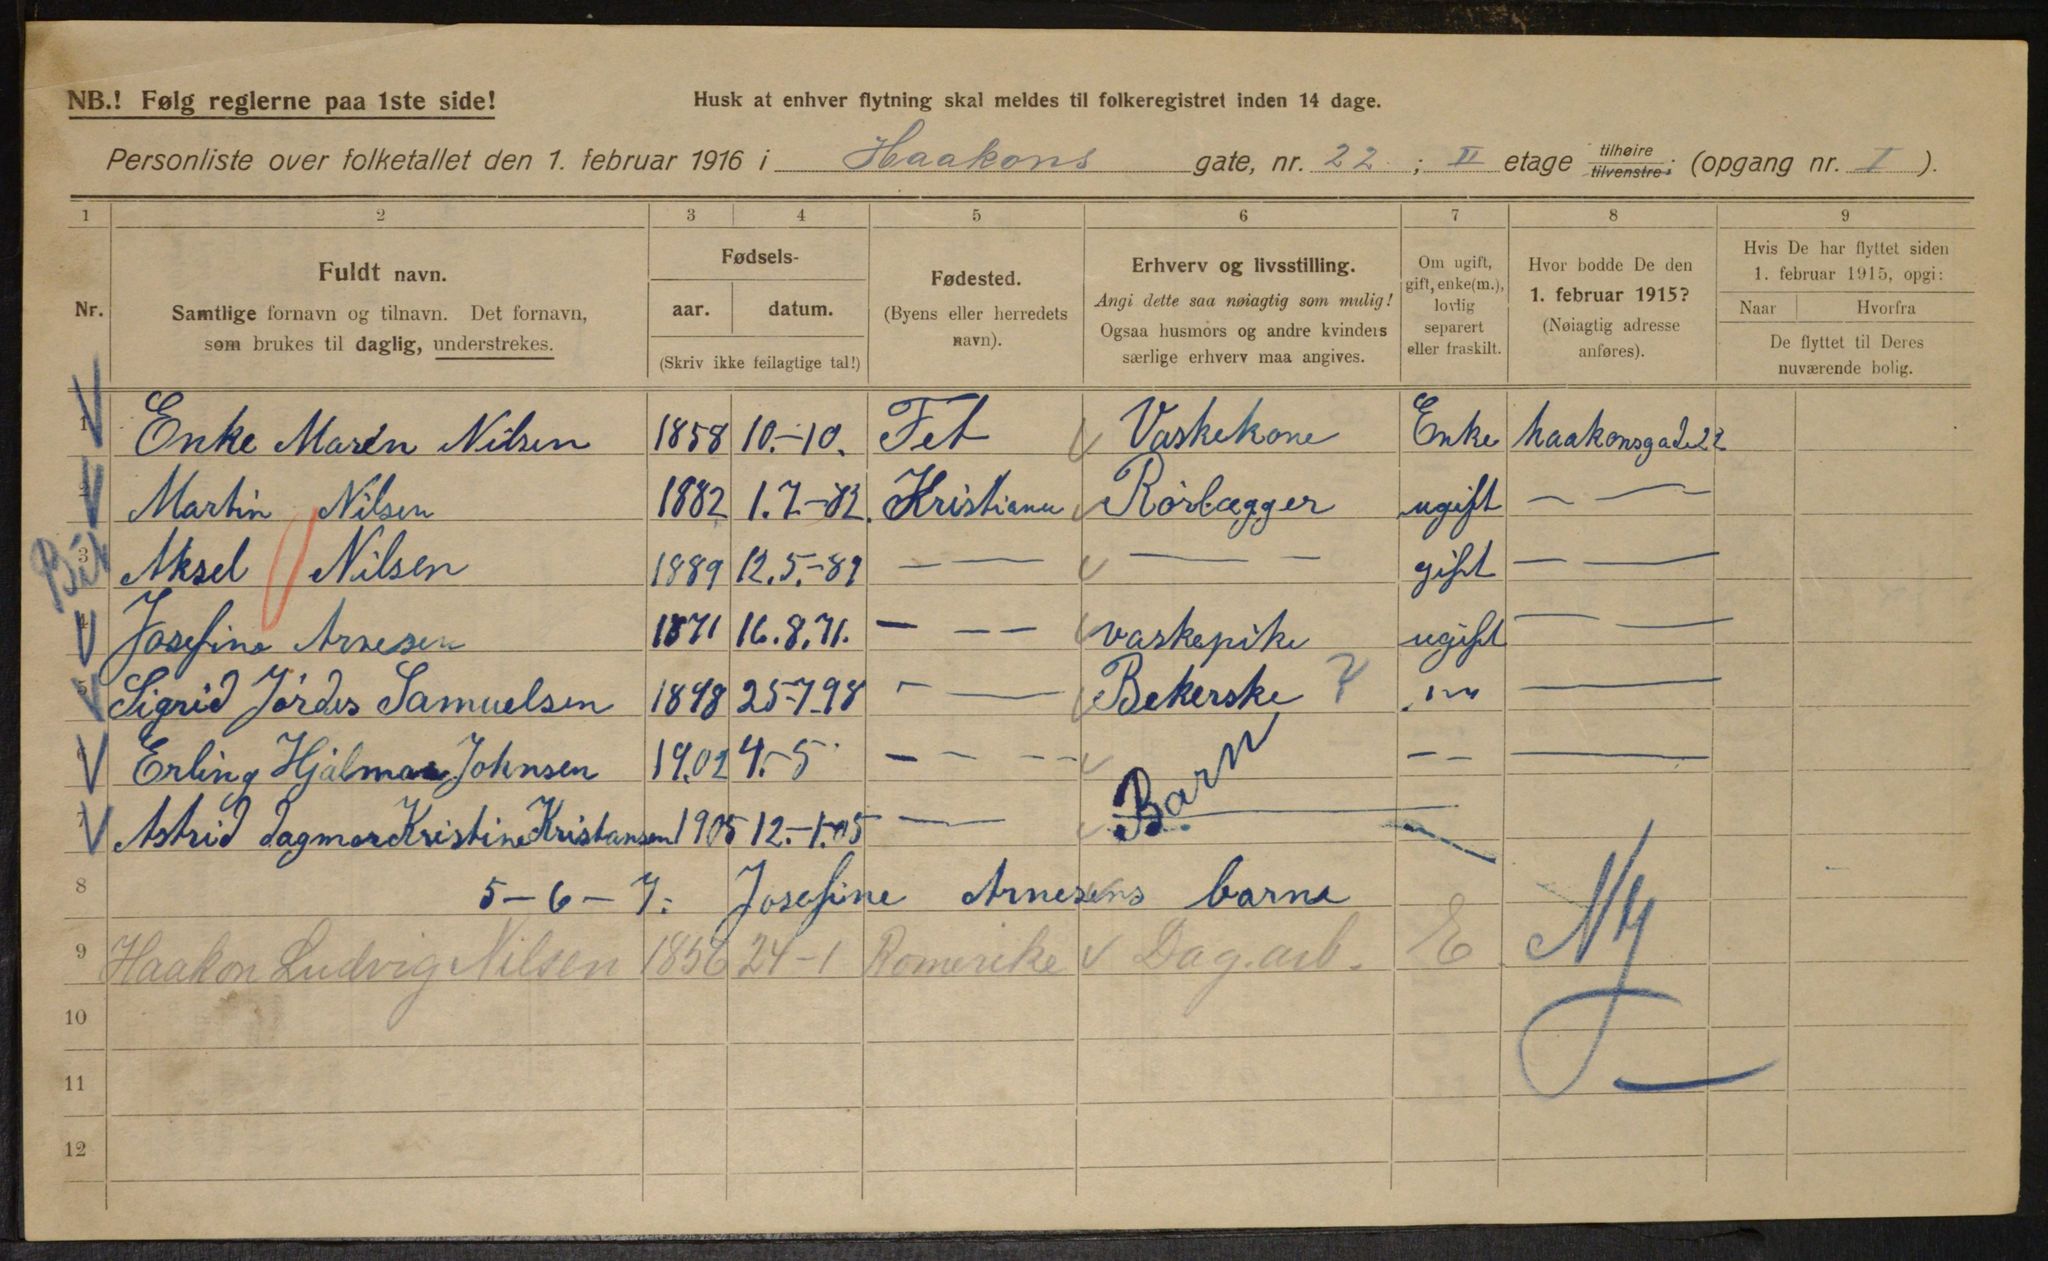 NB.! Følg reglerne paa 1ste side!
Husk at enhver flytning skal meldes til folkeregistret inden 14 dage.
Personliste over folketallet den 1. februar 1916 i Haakons gate, nr. 22 ; II etage tilhøire tilvenstre; (opgang nr. I ).
1 2 3 4 5 6 7 8 9
Nr.
Fuldt navn.
Samtlige fornavn og tilnavn. Det fornavn,
som brukes til daglig, understrekes.
Fødsels-
aar. datum.
(Skriv ikke feilagtige tal!)
Fødested.
(Byens eller herredets
navn).
Erhverv og livsstilling.
Angi dette saa nøiagtig som mulig!
Ogsaa husmors og andre kvinders
særlige erhverv maa angives.
Om ugift,
gift, enke(m.),
lovlig
separert
eller fraskilt.
Hvor bodde De den
1. februar 1915?
(Nøiagtig adresse
anføres).
Hvis De har flyttet siden
1. februar 1915, opgi:
Naar Hvorfra
De flyttet til Deres
nuværende bolig.
1 Enke Maren Nilsen 1858 10.-10. Fet Vaskekone Enke haakonsgade 22
2 Martin Nilsen 1882 1.7.-82. Kristiania Rörlægger ugift — —
3 Aksel Nilsen 1889 12.5.-89 — — — — gift — —
4 Josefine Arnesen 1871 16.8.71. — — — vaskepike ugift — —
5 Sigrid Jórdis Samuelsen 1898 25-7-98 — — Bekerske ? —
6 Erling Hjalmar Johnsen 19.02 4.-5 — — — Barn — — —
7 Astrid dagmar Kristine Kristansen 1905 12.-1.05 — — —
8 5-6-7. Josefine Arnesens barna
9 Haakon Ludvig Nilsen 1856 24-1 Romerike Dag.arb. E. Ny
10
11
12